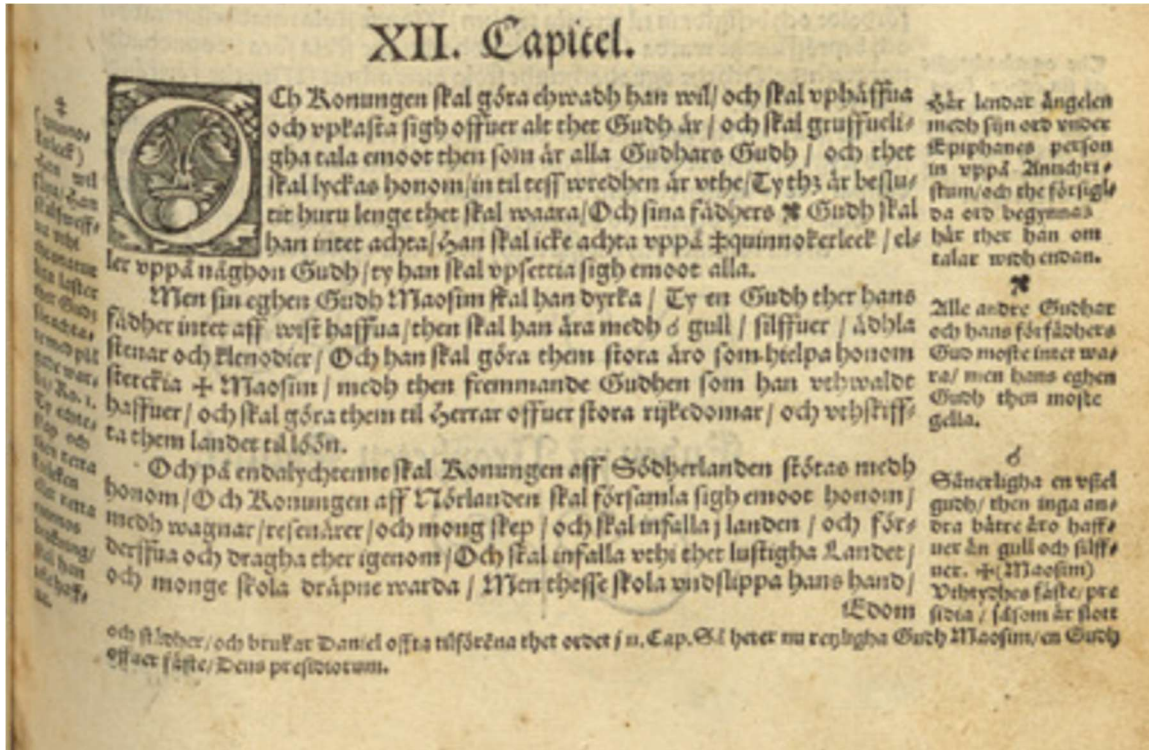 XII. Capitel.
OCh Konungen skal göra ehwadh han wil/ och skal vphäffua
och vpkasta sigh offuer alt thet Gudh är/ och skal gruffueli-
gha tala emoot then som är alla Gudhars Gudh/ och thet
skal lyckas honom/in til tess wredhen är vthe/Ty thz är beslu-
tit huru lenge thet skal waara/Och sina fädhers ✖ Gudh skal
han intet achta/Han skal icke achta vppå ‡quinnokerleek/el-
ler vppå någhon Gudh/ty han skal vpsettia sigh emoot alla.
Men sin eghen Gudh Maosim skal han dyrka/ Ty en Gudh ther hans
fädher intet aff wist haffua/then skal han ära medh ☌ gull/ silffuer/ ädhla
stenar och klenodier/ Och han skal göra them stora äro som hielpa honom
sterckia ✠ Maosim/ medh then fremmande Gudhen som han vthwaldt
haffuer/ och skal göra them til Herrar offuer stora rijkedomar/ och vthskiff-
ta them landet til löön.
Och på endalychtenne skal Konungen aff Södherlanden stötas medh
honom/Och Konungen aff Nörlanden skal församla sigh emoot honom/
medh wagnar/resenärer/och mong skep/ och skal infalla j landen/ och för-
derffua och dragha ther igenom/Och skal infalla vthi thet lustigha Landet/
och monge skola dräpne warda/ Men thesse skola vndslippa hans hand/
Edom
Här lendar ängelen
medh sijn ord vnder
Epiphanes person
in vppå Antichri-
stum/och the försigl-
da ord begynnas
här ther han om
talar widh endan.
✖
Alle andre Gudhar
och hans förfädhers
Gud moste intet wa-
ra/ men hans eghen
Gudh then moste
gella.
☌
Sånerligha en vsel
gudh/ then inga an-
dra bätre äro haff-
uer än gull och silff-
uer. ✠(Maosim)
Vthtydhes fäste/pre
sidia/ såsom är slott
och städher/och brukar Daniel offta tilförena thet ordet j n.Cap.Så heter nu Gudh Maosim/en Gudh
offuer fäste/Deus presidiorum.